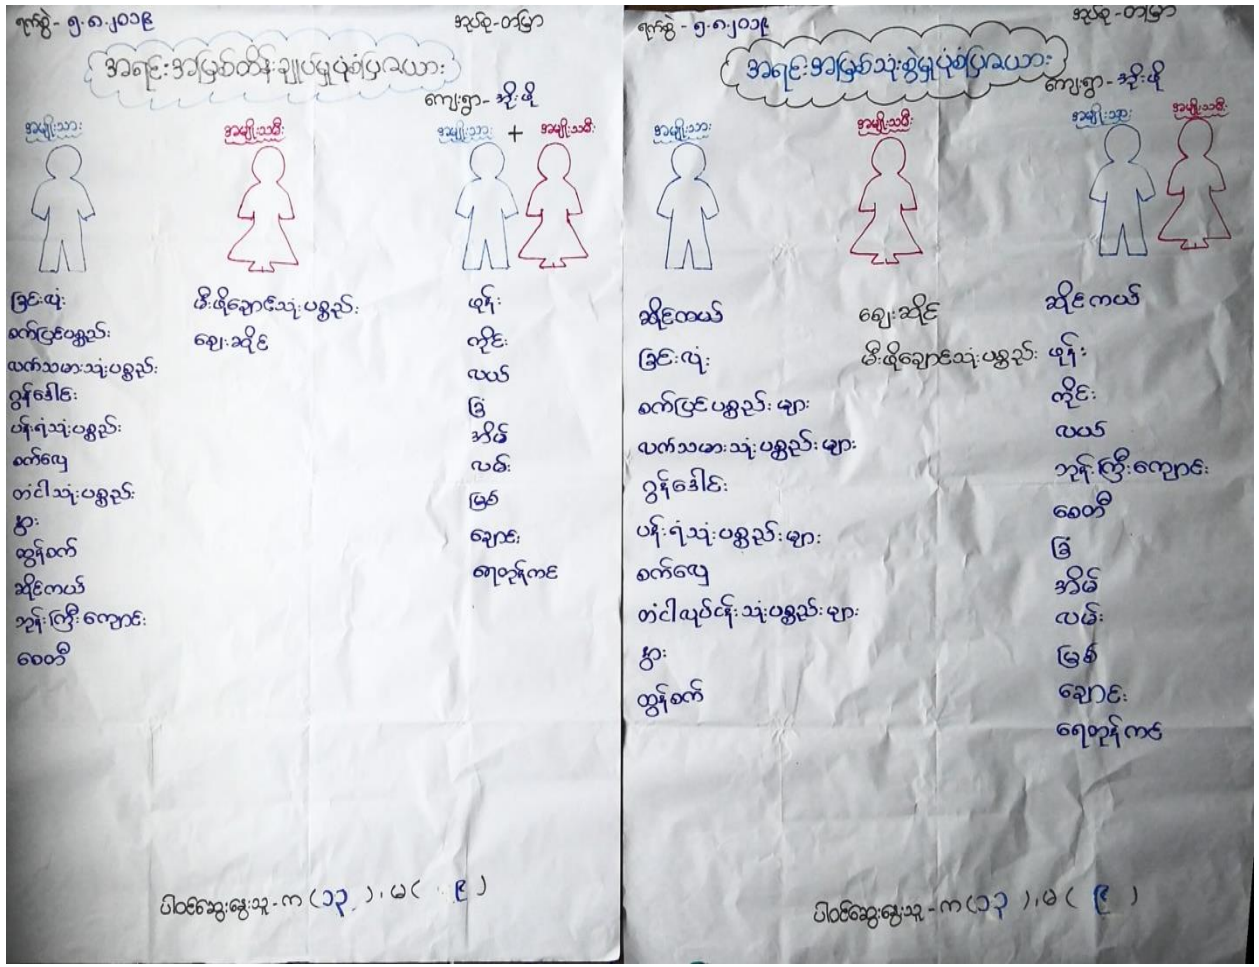 ရက်စွဲ - ၅.၈.၂၀၁၉
အုပ်စု-တမြာ
အရင်းအမြစ်ထိန်းချုပ်မှုပုံစံပြဇယား
ကျေးရွာ-အိုးဖို
အမျိုးသား
အမျိုးသမီး
အမျိုးသား + အမျိုးသမီး
ခြင်းလုံး
စက်ပြင်ပစ္စည်း
လက်သမားသုံးပစ္စည်း
ဂွန်ဒေါင်း
ပန်းရံသုံးပစ္စည်း
စက်လှေ
တံငါသုံးပစ္စည်း
နွား
ထွန်စက်
ဆိုင်ကယ်
ဘုန်းကြီးကျောင်း
စေတီ
မီးဖိုချောင်သုံးပစ္စည်း
ဈေးဆိုင်
ဖုန်း
ကိုင်း
လယ်
ခြံ
အိမ်
လမ်း
မြစ်
ချောင်း
ရေတုန်ကင်
ပါဝင်ဆွေးနွေးသူ-က (၁၃)၊ မ (၉)
ရက်စွဲ - ၅.၈.၂၀၁၉
အုပ်စု-တမြာ
အရင်းအမြစ်သုံးစွဲမှုပုံစံပြဇယား
ကျေးရွာ-အိုးဖို
အမျိုးသား
အမျိုးသမီး
အမျိုးသား
အမျိုးသမီး
ဆိုင်ကယ်
ခြင်းလုံး
စက်ပြင်ပစ္စည်းများ
လက်သမားသုံးပစ္စည်းများ
ဂွန်ဒေါင်း
ပန်းရံသုံးပစ္စည်းများ
စက်လှေ
တံငါလုပ်ငန်းသုံးပစ္စည်းများ
နွား
ထွန်စက်
ဈေးဆိုင်
မီးဖိုချောင်သုံးပစ္စည်း
ဆိုင်ကယ်
ဖုန်း
ကိုင်း
လယ်
ဘုန်းကြီးကျောင်း
စေတီ
ခြံ
အိမ်
လမ်း
မြစ်
ချောင်း
ရေတုန်ကင်
ပါဝင်ဆွေးနွေးသူ-က (၁၃)၊ မ (၉)